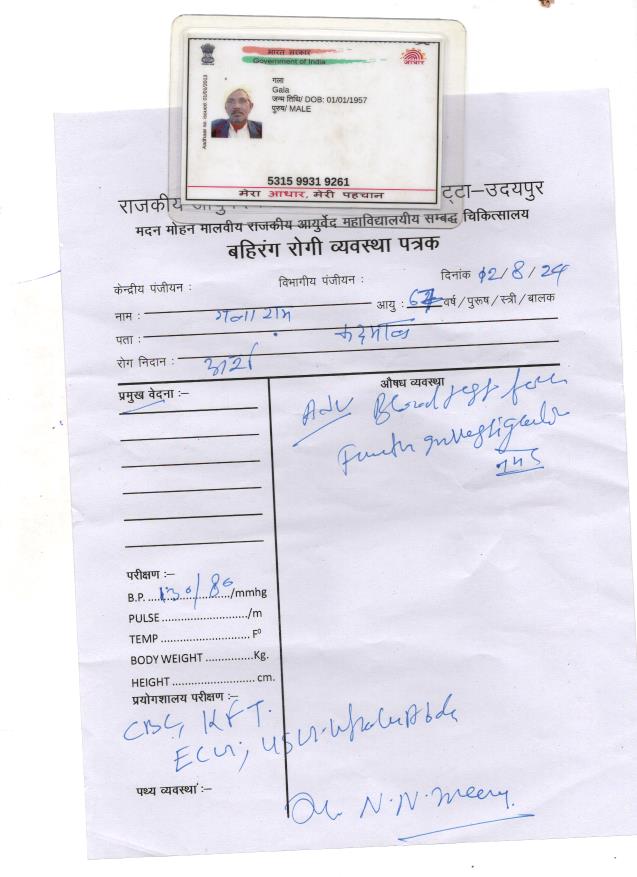 भारत सरकार
Government of India
आधार
गला
Gala
जन्म तिथि/ DOB: 01/01/1957
पुरुष/ MALE
5315 9931 9261
मेरा आधार, मेरी पहचान
राजकीय ट्टा–उदयपुर
मदन मोहन मालवीय राजकीय आयुर्वेद महाविद्यालयीय सम्बद्ध चिकित्सालय
बहिरंग रोगी व्यवस्था पत्रक
केन्द्रीय पंजीयन : विभागीय पंजीयन : दिनांक 12/8/24
नाम : गला राम आयु : 67 वर्ष/पुरूष/स्त्री/बालक
पता :
रोग निदान : अर्श
प्रमुख वेदना :– औषध व्यवस्था
Adv Blood test for
Further investigation
परीक्षण :–
B.P. 130/80 /mmhg
PULSE /m
TEMP F⁰
BODY WEIGHT Kg.
HEIGHT cm.
प्रयोगशालय परीक्षण :–
CBC, KFT.
ECG, USG-Whole Abdo
पथ्य व्यवस्था :–
Dr. N.N.